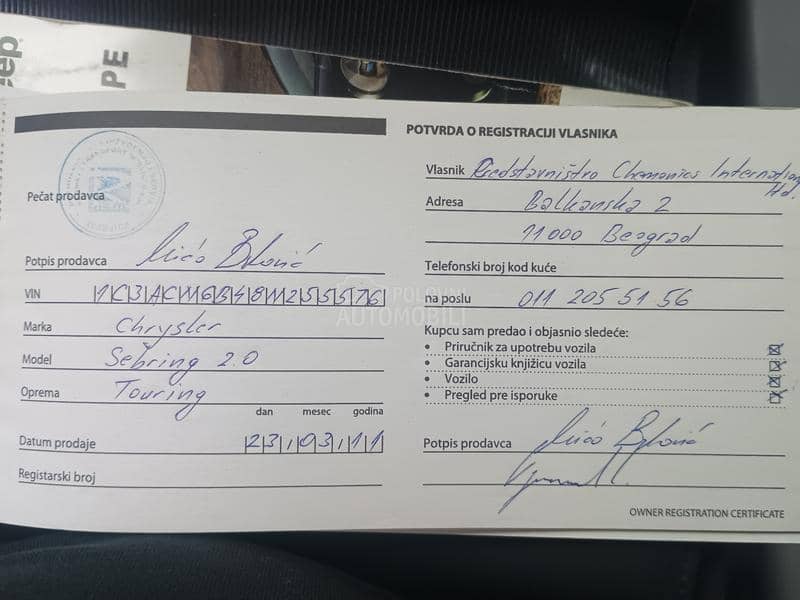 eep
PE
POTVRDA O REGISTRACIJI VLASNIKA
Pečat prodavca
Potpis prodavca
VIN 1C3ACM6B48M255576
Marka Chrysler
Model Sebring 2.0
Oprema Touring
dan mesec godina
Datum prodaje 23.03.11
Registarski broj
Vlasnik Predstavništvo Chemonics International
Ltd.
Adresa Balkanska 2
11000 Beograd
Telefonski broj kod kuće
na poslu 011 205 51 56
Kupcu sam predao i objasnio sledeće:
• Priručnik za upotrebu vozila
• Garancijsku knjižicu vozila
• Vozilo
• Pregled pre isporuke
Potpis prodavca
OWNER REGISTRATION CERTIFICATE
POLOVNI
AUTOMOBILI